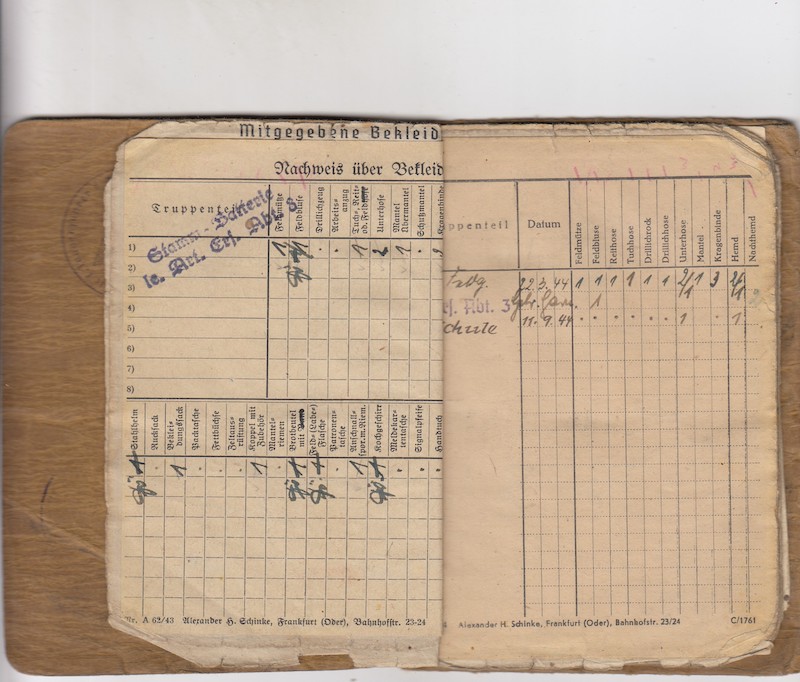 Mitgegebene Bekleid
Nachweis über Bekleid
Truppenteil
Feldmütze
Feldbluse
Drillichzeug
Arbeits=
anzug
Tuch=, Reit=
Unterhose
Mantel
Übermantel
Schutzmantel
Kragenbinde
Stamm-Batterie
le. Art. Ers. Abt. 8
1) 1 1 . . 1 2 1 .
2)
3)
4)
5)
6)
7)
8)
Stahlhelm
Rucksack
Beklei=
dungssack
Packtasche
Fettbüchse
Zeltaus=
rüstung
Koppel mit
Zubehör
Mantel=
riemen
Brotbeutel
mit
Feld= (Labe=)
Flasche
Patronen=
tasche
Anschnall=
sporn m. Riem.
Kochgeschirr
Meldekar=
tentasche
Signalpfeife
Handtuch
1 . 1 . . . 1 . 1 1 . 1 1 . .
Nr. A 62/43 Alexander H. Schinke, Frankfurt (Oder), Bahnhofstr. 23-24
ppenteil
Datum
Feldmütze
Feldbluse
Reithose
Tuchhose
Drillichrock
Drillichhose
Unterhose
Mantel
Kragenbinde
Hemd
Nachthemd
22.3.44 1 1 1 1 1 1 2/1 1 3 2/1
Abt. 3 1
chule 11.9.44 . . . . . . 1 . . 1
Alexander H. Schinke, Frankfurt (Oder), Bahnhofstr. 23/24
C/1761